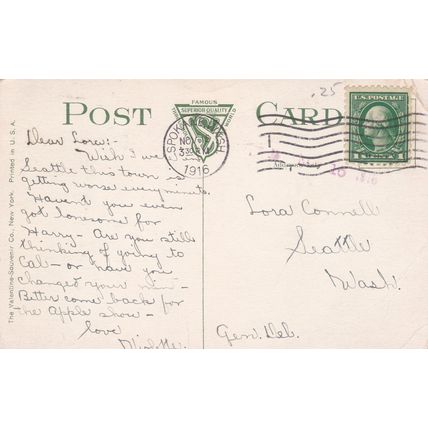 .25
FAMOUS
SUPERIOR QUALITY
WORLD
POST CARD
U.S. POSTAGE
1 1
SPOKANE, WASH
NOV
330 PM
1916
Dear Lora:-
Wish I was
Seattle this town is
getting worse every minute.
Haven't you even
got lonesome for
Harry- Are you still
thinking of going to
Cal- or have you
changed your mind-
Better come back for
the Apple show-
love
Violette.
Lora Connell
Seattle
Wash.
Gen. Del.
The Valentine-Souvenir Co., New York. Printed in U. S. A.